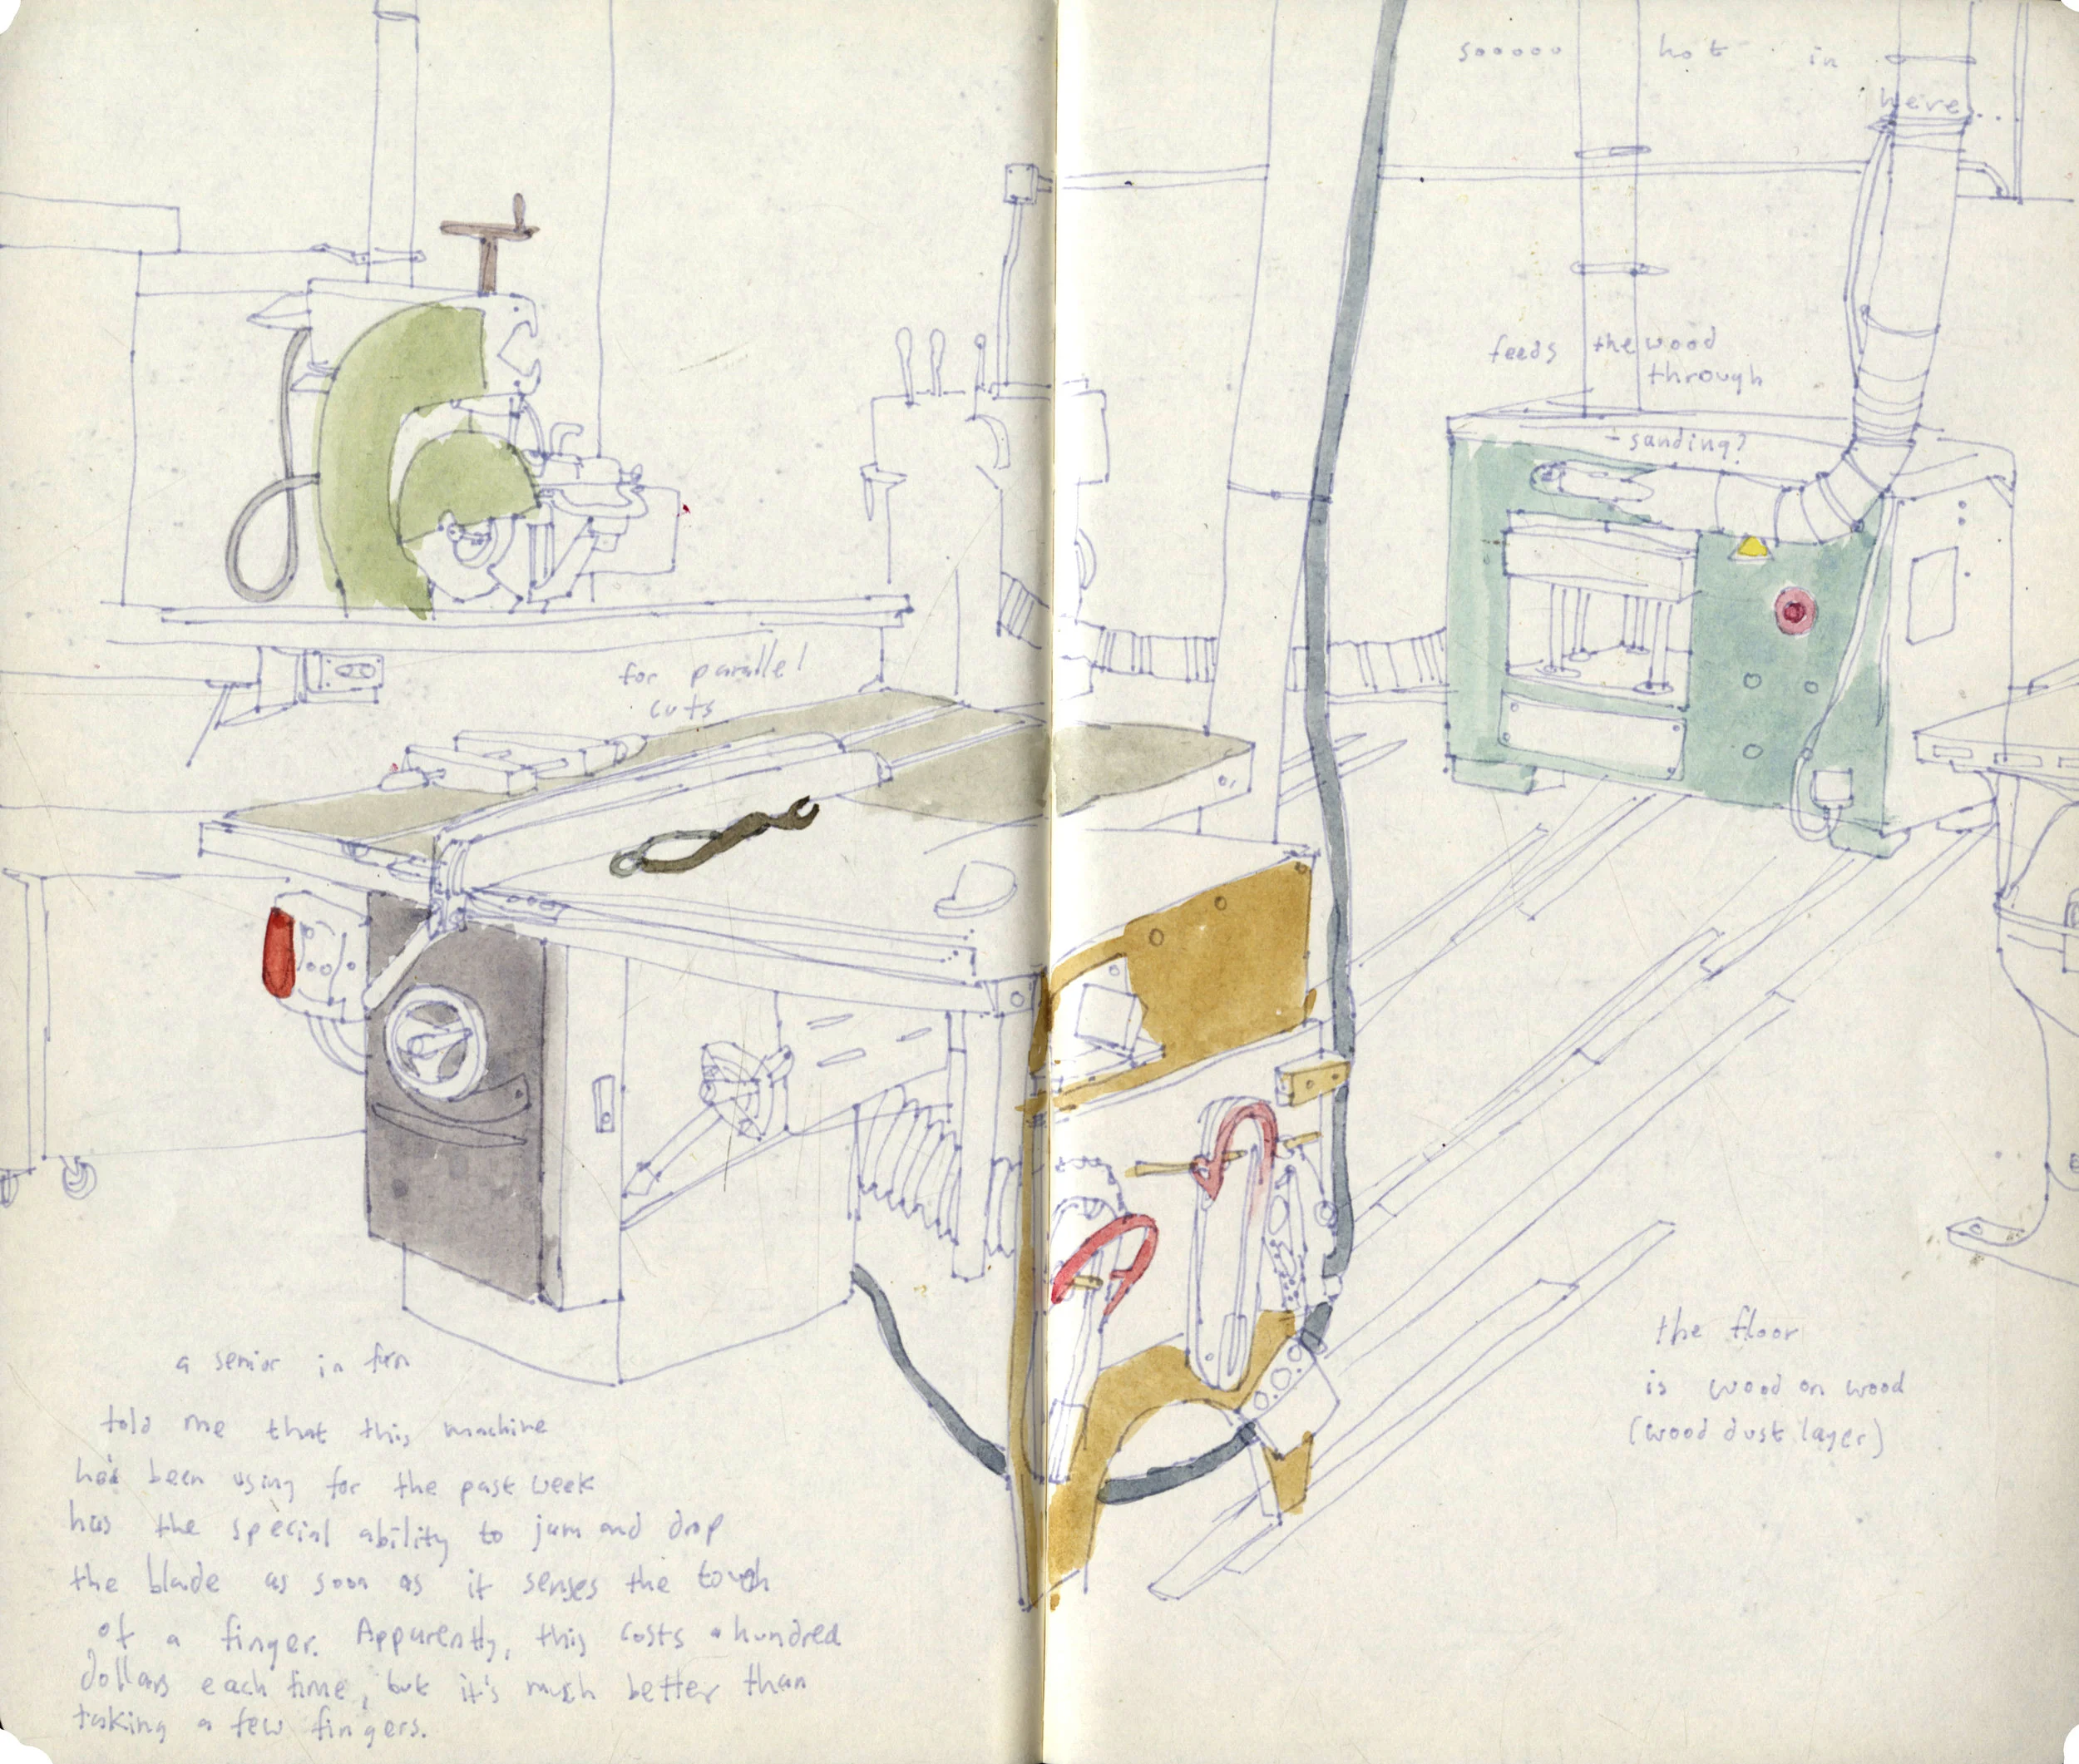 sooooo hot in
here...
feeds the wood
through
- sanding?
for parallel
cuts
a senior in furn
told me that this machine
he'd been using for the past week
has the special ability to jam and drop
the blade as soon as it senses the touch
of a finger. Apparently, this costs a hundred
dollars each time, but it's much better than
taking a few fingers.
the floor
is wood on wood
(wood dust layer)